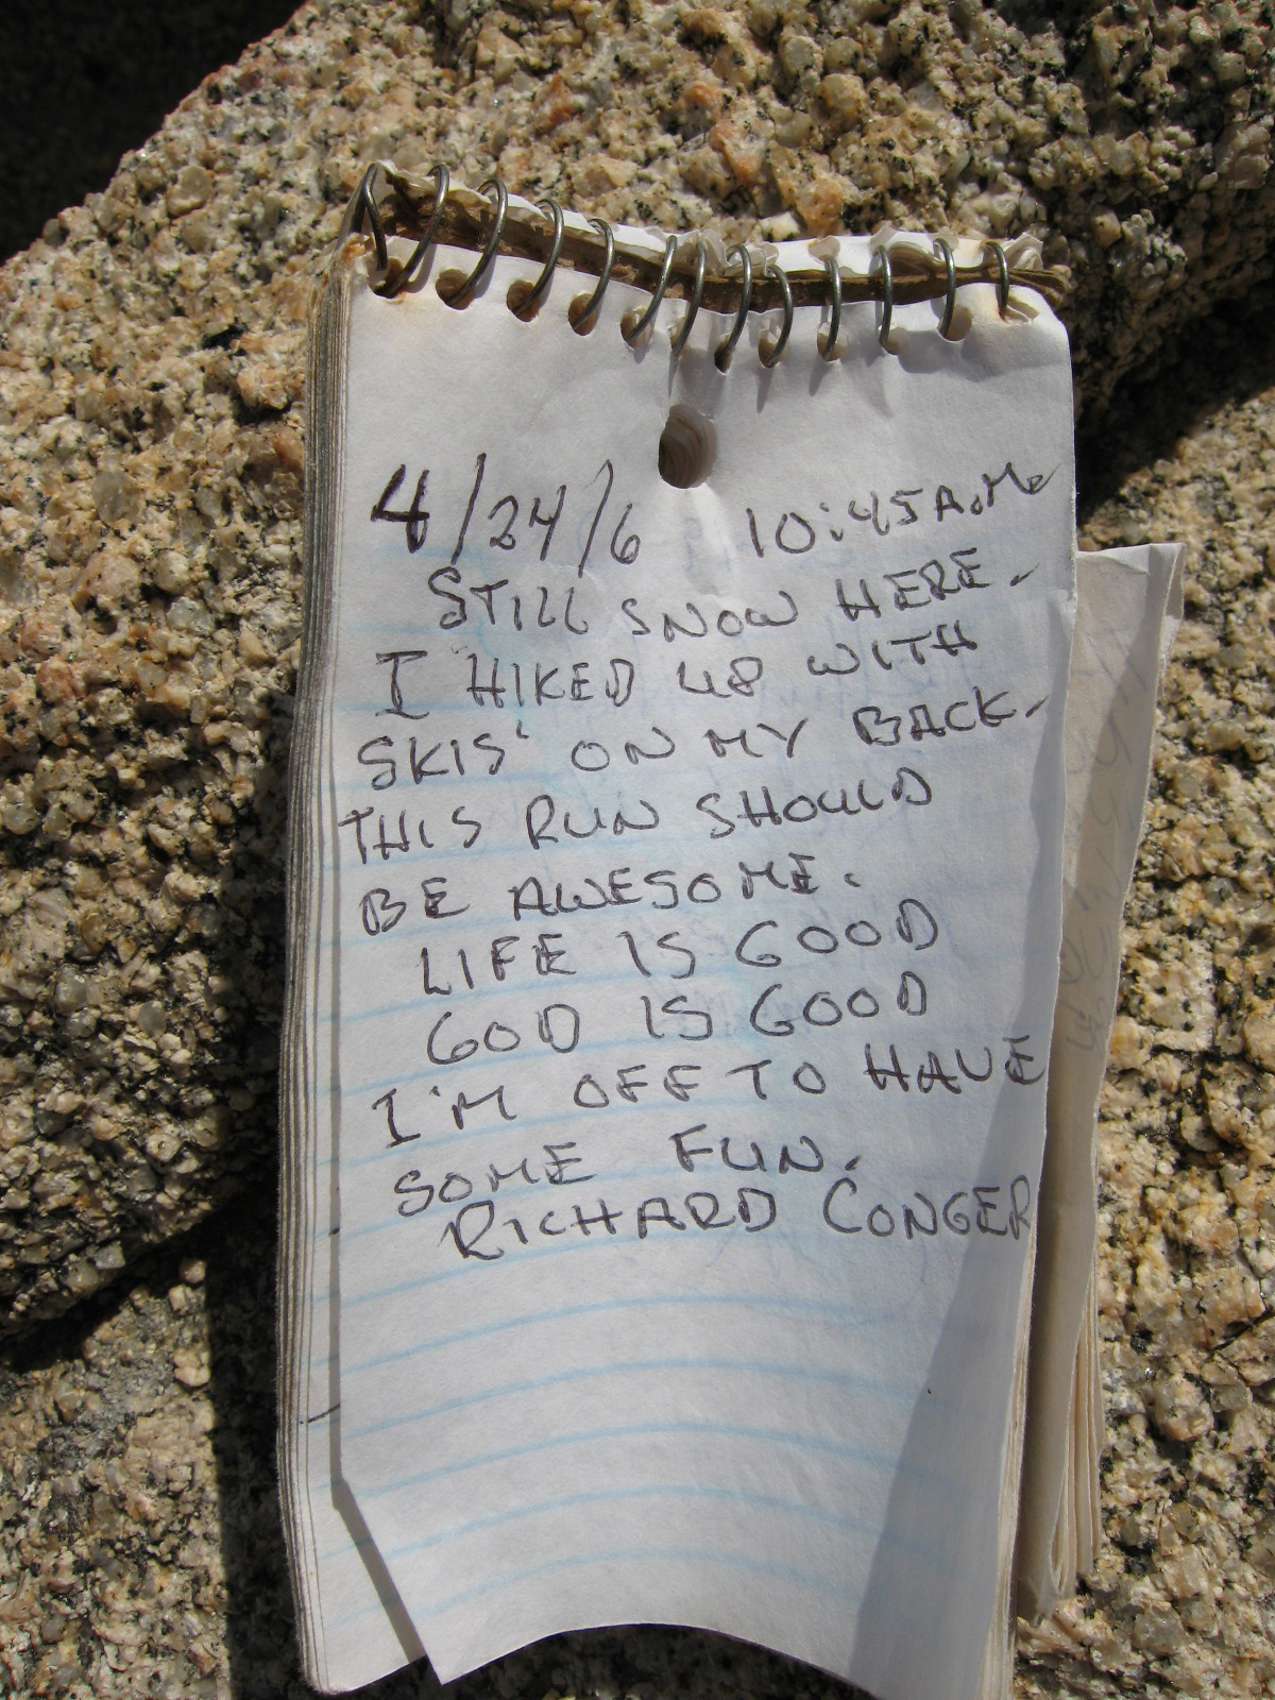 4/24/6 10:45 A.M.
STILL SNOW HERE.
I HIKED UP WITH
SKIS' ON MY BACK.
THIS RUN SHOULD
BE AWESOME.
LIFE IS GOOD
GOD IS GOOD
I'M OFF TO HAVE
SOME FUN.
RICHARD CONGER